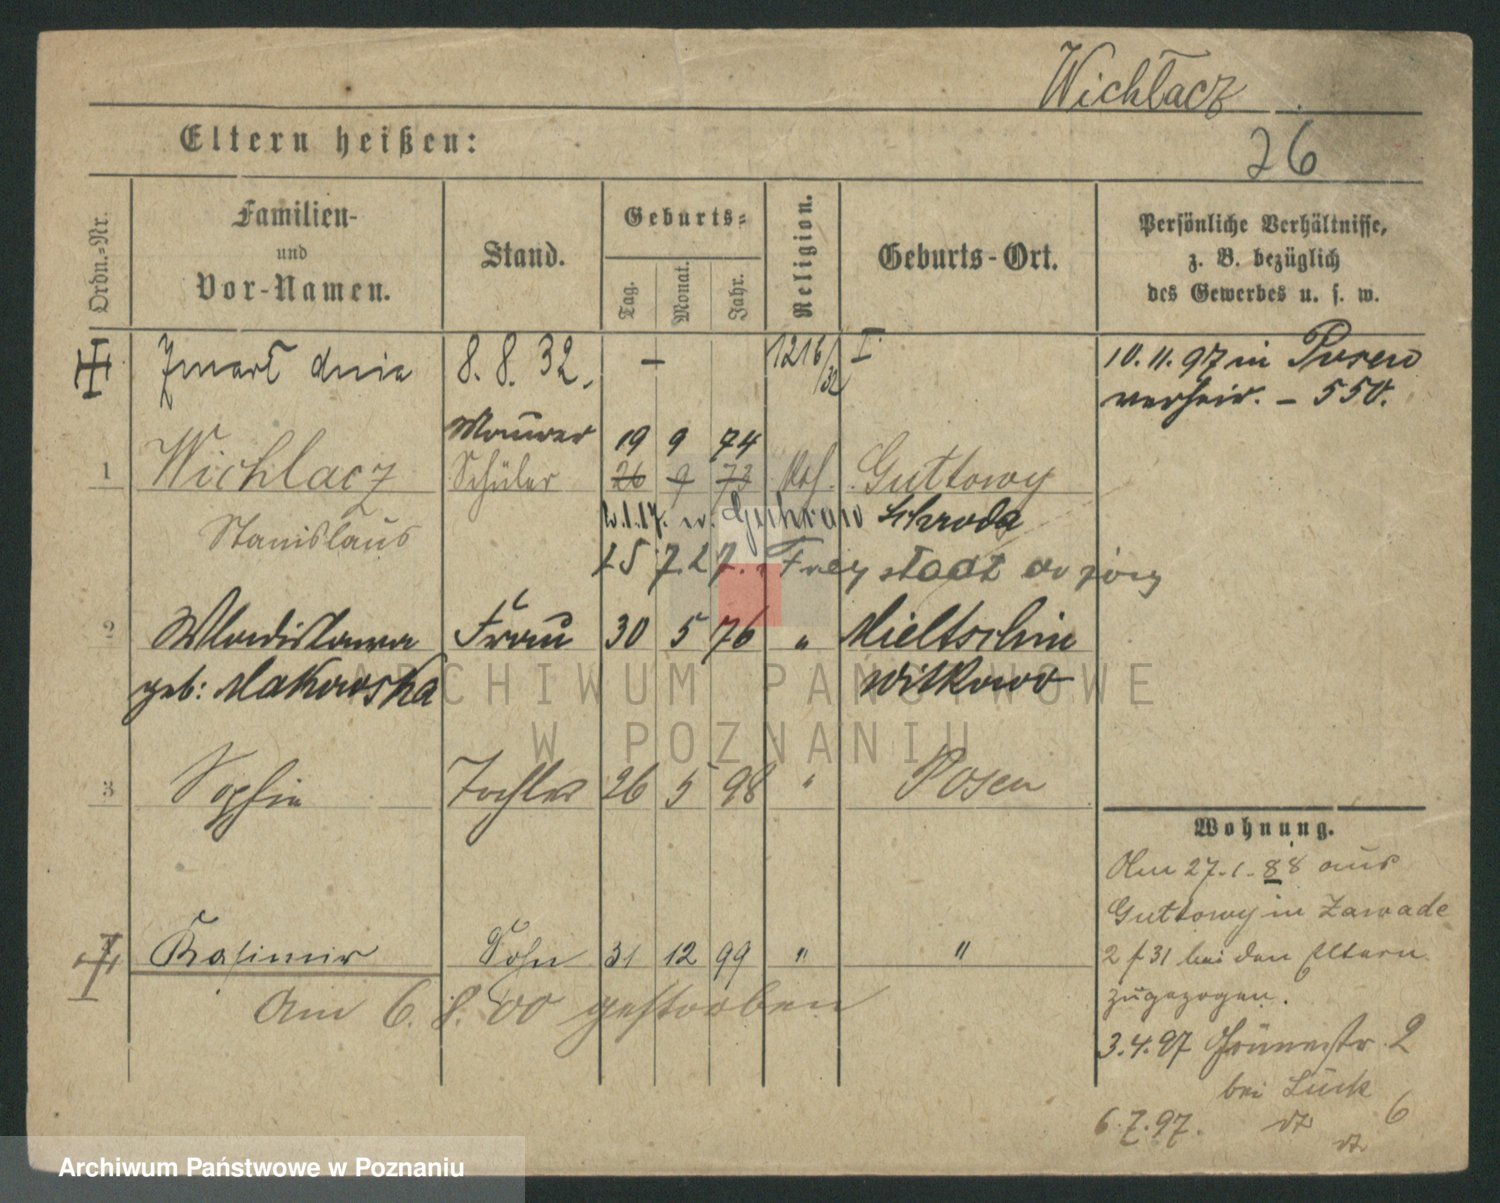 Wichłacz
26
Eltern heißen:
Ordn.-Nr.
Familien-
und
Vor-Namen.
Stand.
Geburts-
Tag.
Monat.
Jahr.
Religion.
Geburts-Ort.
Persönliche Verhältnisse,
z. B. bezüglich
des Gewerbes u. s. w.
Zmarł dnia 8. 8. 32. – 1216/32 I
10. 11. 97 in Posen
verheir. – 550.
Maurer 19 9 74
1 Wichlacz Schüler 26 9 73 Kth. Guttowy
Stanislaus
Schroda
15 7. 27. Freystadt
2 Wladislawa Frau 30 5 76 " Mieltschin
geb: Makowska Witkowo
ARCHIWUM PAŃSTWOWE
W POZNANIU
3 Sophie Tochter 26 5 98 " Posen
Wohnung.
Am 27. 1. 88 aus
Guttowy in Zawade
2 f 31 bei den Eltern
zugezogen.
Kasimir Sohn 31 12 99 " "
Am 6. 8. 00 gestorben
3. 4. 97 2
bei Lück
6. 7. 97. dt 6
dt
Archiwum Państwowe w Poznaniu